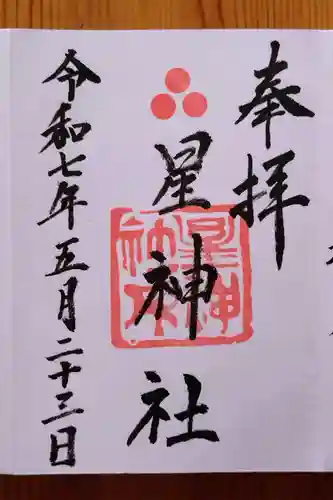 奉拝
星神社
星神社
令和七年五月二十三日